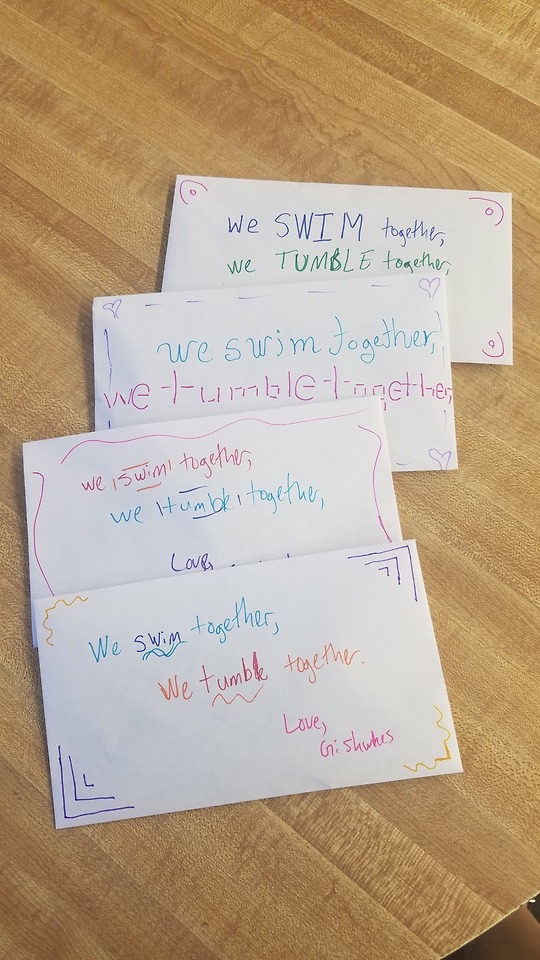 We SWIM together,
we TUMBLE together,
we swim together,
we tumble together,
we swim together,
we tumble together,
Love,
We swim together,
We tumble together.
Love,